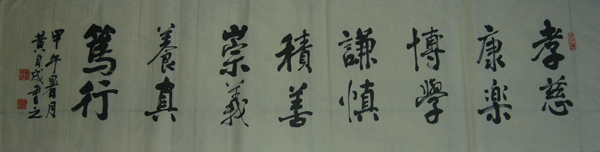 孝慈
康樂
博學
謙慎
積善
崇義
養真
篤行
甲午暑月
黄自戌書之